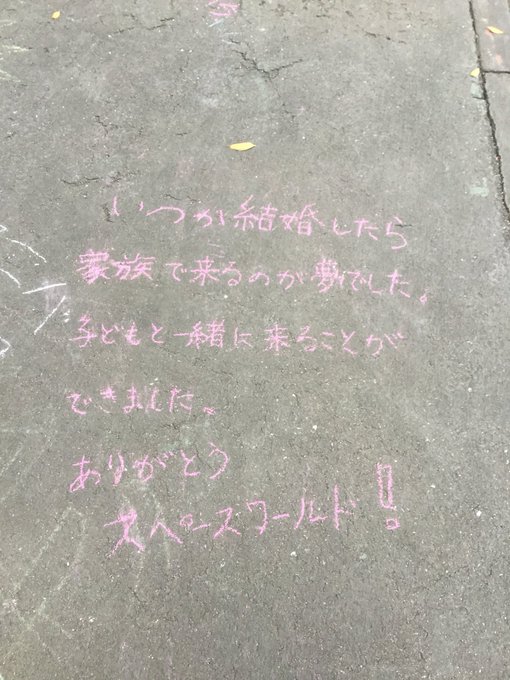 いつか結婚したら
家族で来るのが夢でした。
子どもと一緒に来ることが
できました。
ありがとう
スペースワールド!